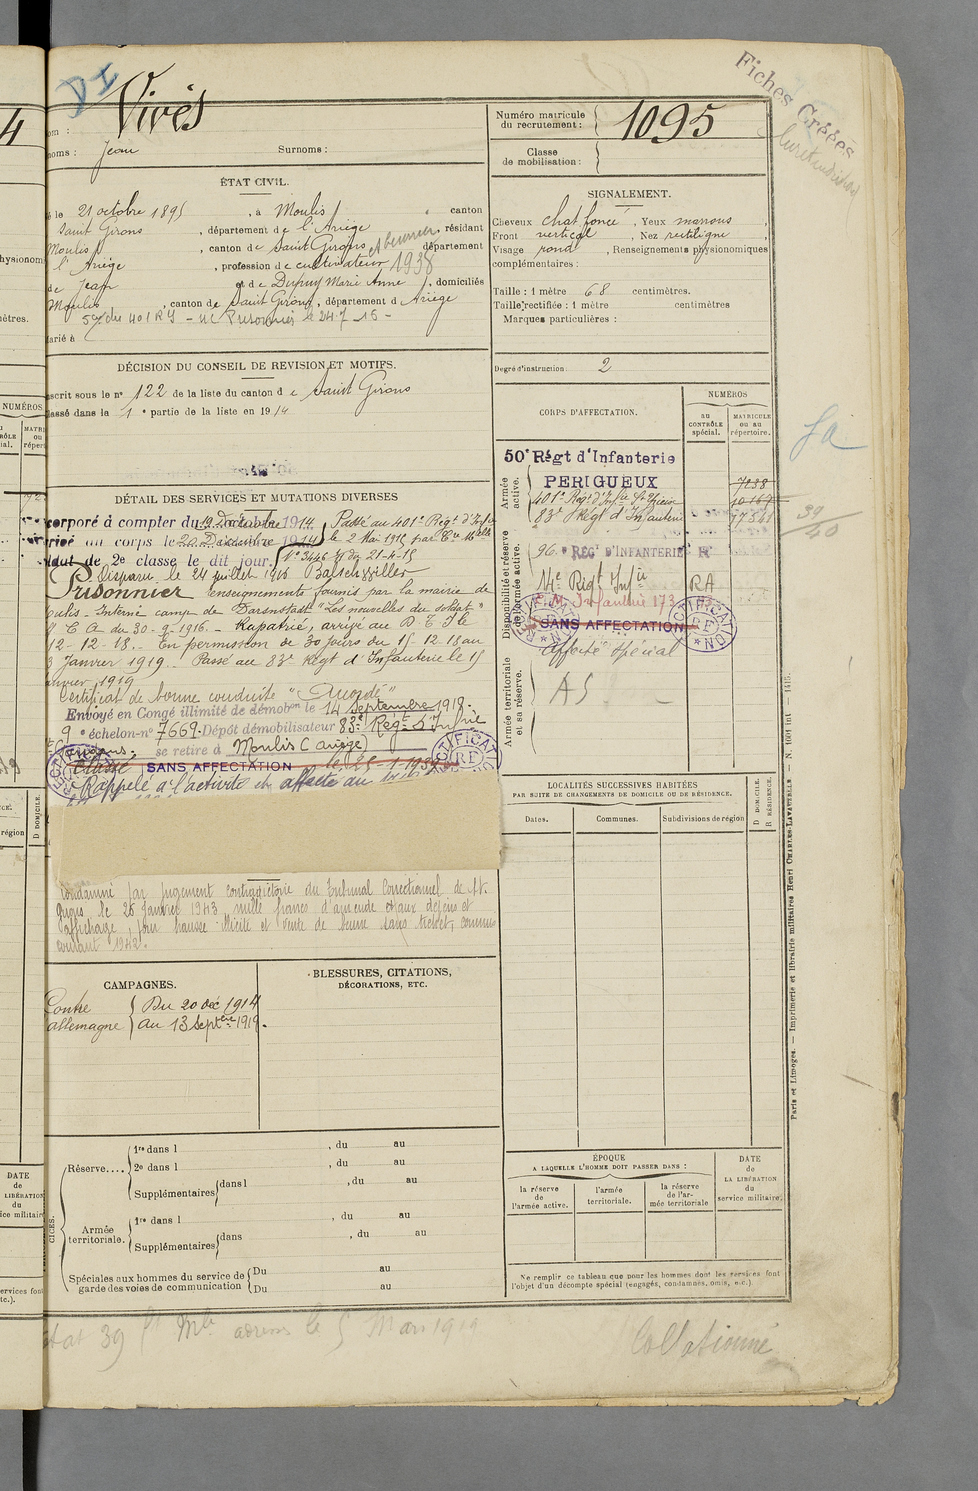 Fiches Créées
4
DI
Vivès
Numéro matricule
du recrutement :
1095
noms : Jean Surnome :
Classe
de mobilisation :
ÉTAT CIVIL.
le 21 octobre 1895, à Moulis, canton
Saint Girons, département de l'Ariège, résidant
Moulis, canton de Saint Girons, département
l'Ariège, profession de cultivateur 1938
de Jean et de Dupuy Marie Anne, domiciliés
Moulis, canton de Saint Girons, département d Ariège
du 401 RI - Prisonnier le 24-7-15 -
marié à
SIGNALEMENT.
Cheveux chat foncé, Yeux marrons,
Front vertical, Nez rectiligne,
Visage rond, Renseignements physionomiques
complémentaires :
Taille : 1 mètre 68 centimètres.
Taille rectifiée : 1 mètre centimètres
Marques particulières :
Degré d'instruction 2
DÉCISION DU CONSEIL DE REVISION ET MOTIFS.
inscrit sous le n° 122 de la liste du canton d e Saint Girons
classé dans la 1e partie de la liste en 1914
CORPS D'AFFECTATION.
NUMÉROS
au
CONTRÔLE
spécial.
MATRICULE
ou au
répertoire.
Armée
active.
50e Régt d'Infanterie
PERIGUEUX
401e Régt d'Infie
83e Régt d'Infanterie
Disponibilité et réserve
de l'armée active.
96e REGt D'INFANTERIE
14e Régt Infie RA
Infanterie 173
SANS AFFECTATION
RECTIFICATION
Affecté spécial
Armée territoriale
et sa réserve.
AS
39/40
DÉTAIL DES SERVICES ET MUTATIONS DIVERSES
Incorporé à compter du 19 Décembre 1914. Passé au 401e Régt d'Infie
arrivé au corps le 20 Décembre 1914 le 2 Mai 1915 par
soldat de 2e classe le dit jour. N° 3446 du 21-4-15
Disparu le 24 juillet 1915
Prisonnier renseignements fournis par la mairie de
Moulis - Interné camp de Darmstadt "Les nouvelles du soldat"
du 30-9-1916. - Rapatrié, arrivé au D T I le
12-12-18. - En permission de 30 jours du 15-12-18 au
Janvier 1919 Passé au 83e Régt d'Infanterie le 15
janvier 1919
Certificat de bonne conduite "Accordé"
Envoyé en Congé illimité de démobon le 14 Septembre 1919.
9e échelon-n° 7669. Dépôt démobilisateur 83e Régt d'Infie
se retire à Moulis (Ariège)
Classé SANS AFFECTATION
RECTIFICATION
Rappelé à l'activité et affecté au
Condamné par jugement contradictoire du Tribunal Correctionnel de St-
Girons le 26 Janvier 1943 mille francs d'amende et aux dépens et
affichage, pour hausse illicite et vente de beurre sans ticket, commis
courant 1942.
LOCALITÉS SUCCESSIVES HABITÉES
PAR SUITE DE CHANGEMENTS DE DOMICILE OU DE RÉSIDENCE.
Dates.
Communes.
Subdivisions de région
D DOMICILE.
R RÉSIDENCE.
CAMPAGNES.
Contre
allemagne
Du 20 déc 1914
au 13 Septbre 1919.
BLESSURES, CITATIONS,
DÉCORATIONS, ETC.
Réserve....
1re dans l , du au
2e dans l , du au
Supplémentaires dans l , du au
Armée
territoriale.
1re dans l , du au
Supplémentaires dans , du au
Spéciales aux hommes du service de
garde des voies de communication
Du au
Du au
ÉPOQUE
A LAQUELLE L'HOMME DOIT PASSER DANS :
la réserve
de
l'armée active.
l'armée
territoriale.
la réserve
de l'ar-
mée territoriale
DATE
de
LA LIBÉRATION
du
service militaire.
Ne remplir ce tableau que pour les hommes dont les services font
l'objet d'un décompte spécial (engagés, condamnés, omis, etc.).
Paris et Limoges. — Imprimerie et librairie militaires Henri CHARLES-LAVAUZELLE
Collationné